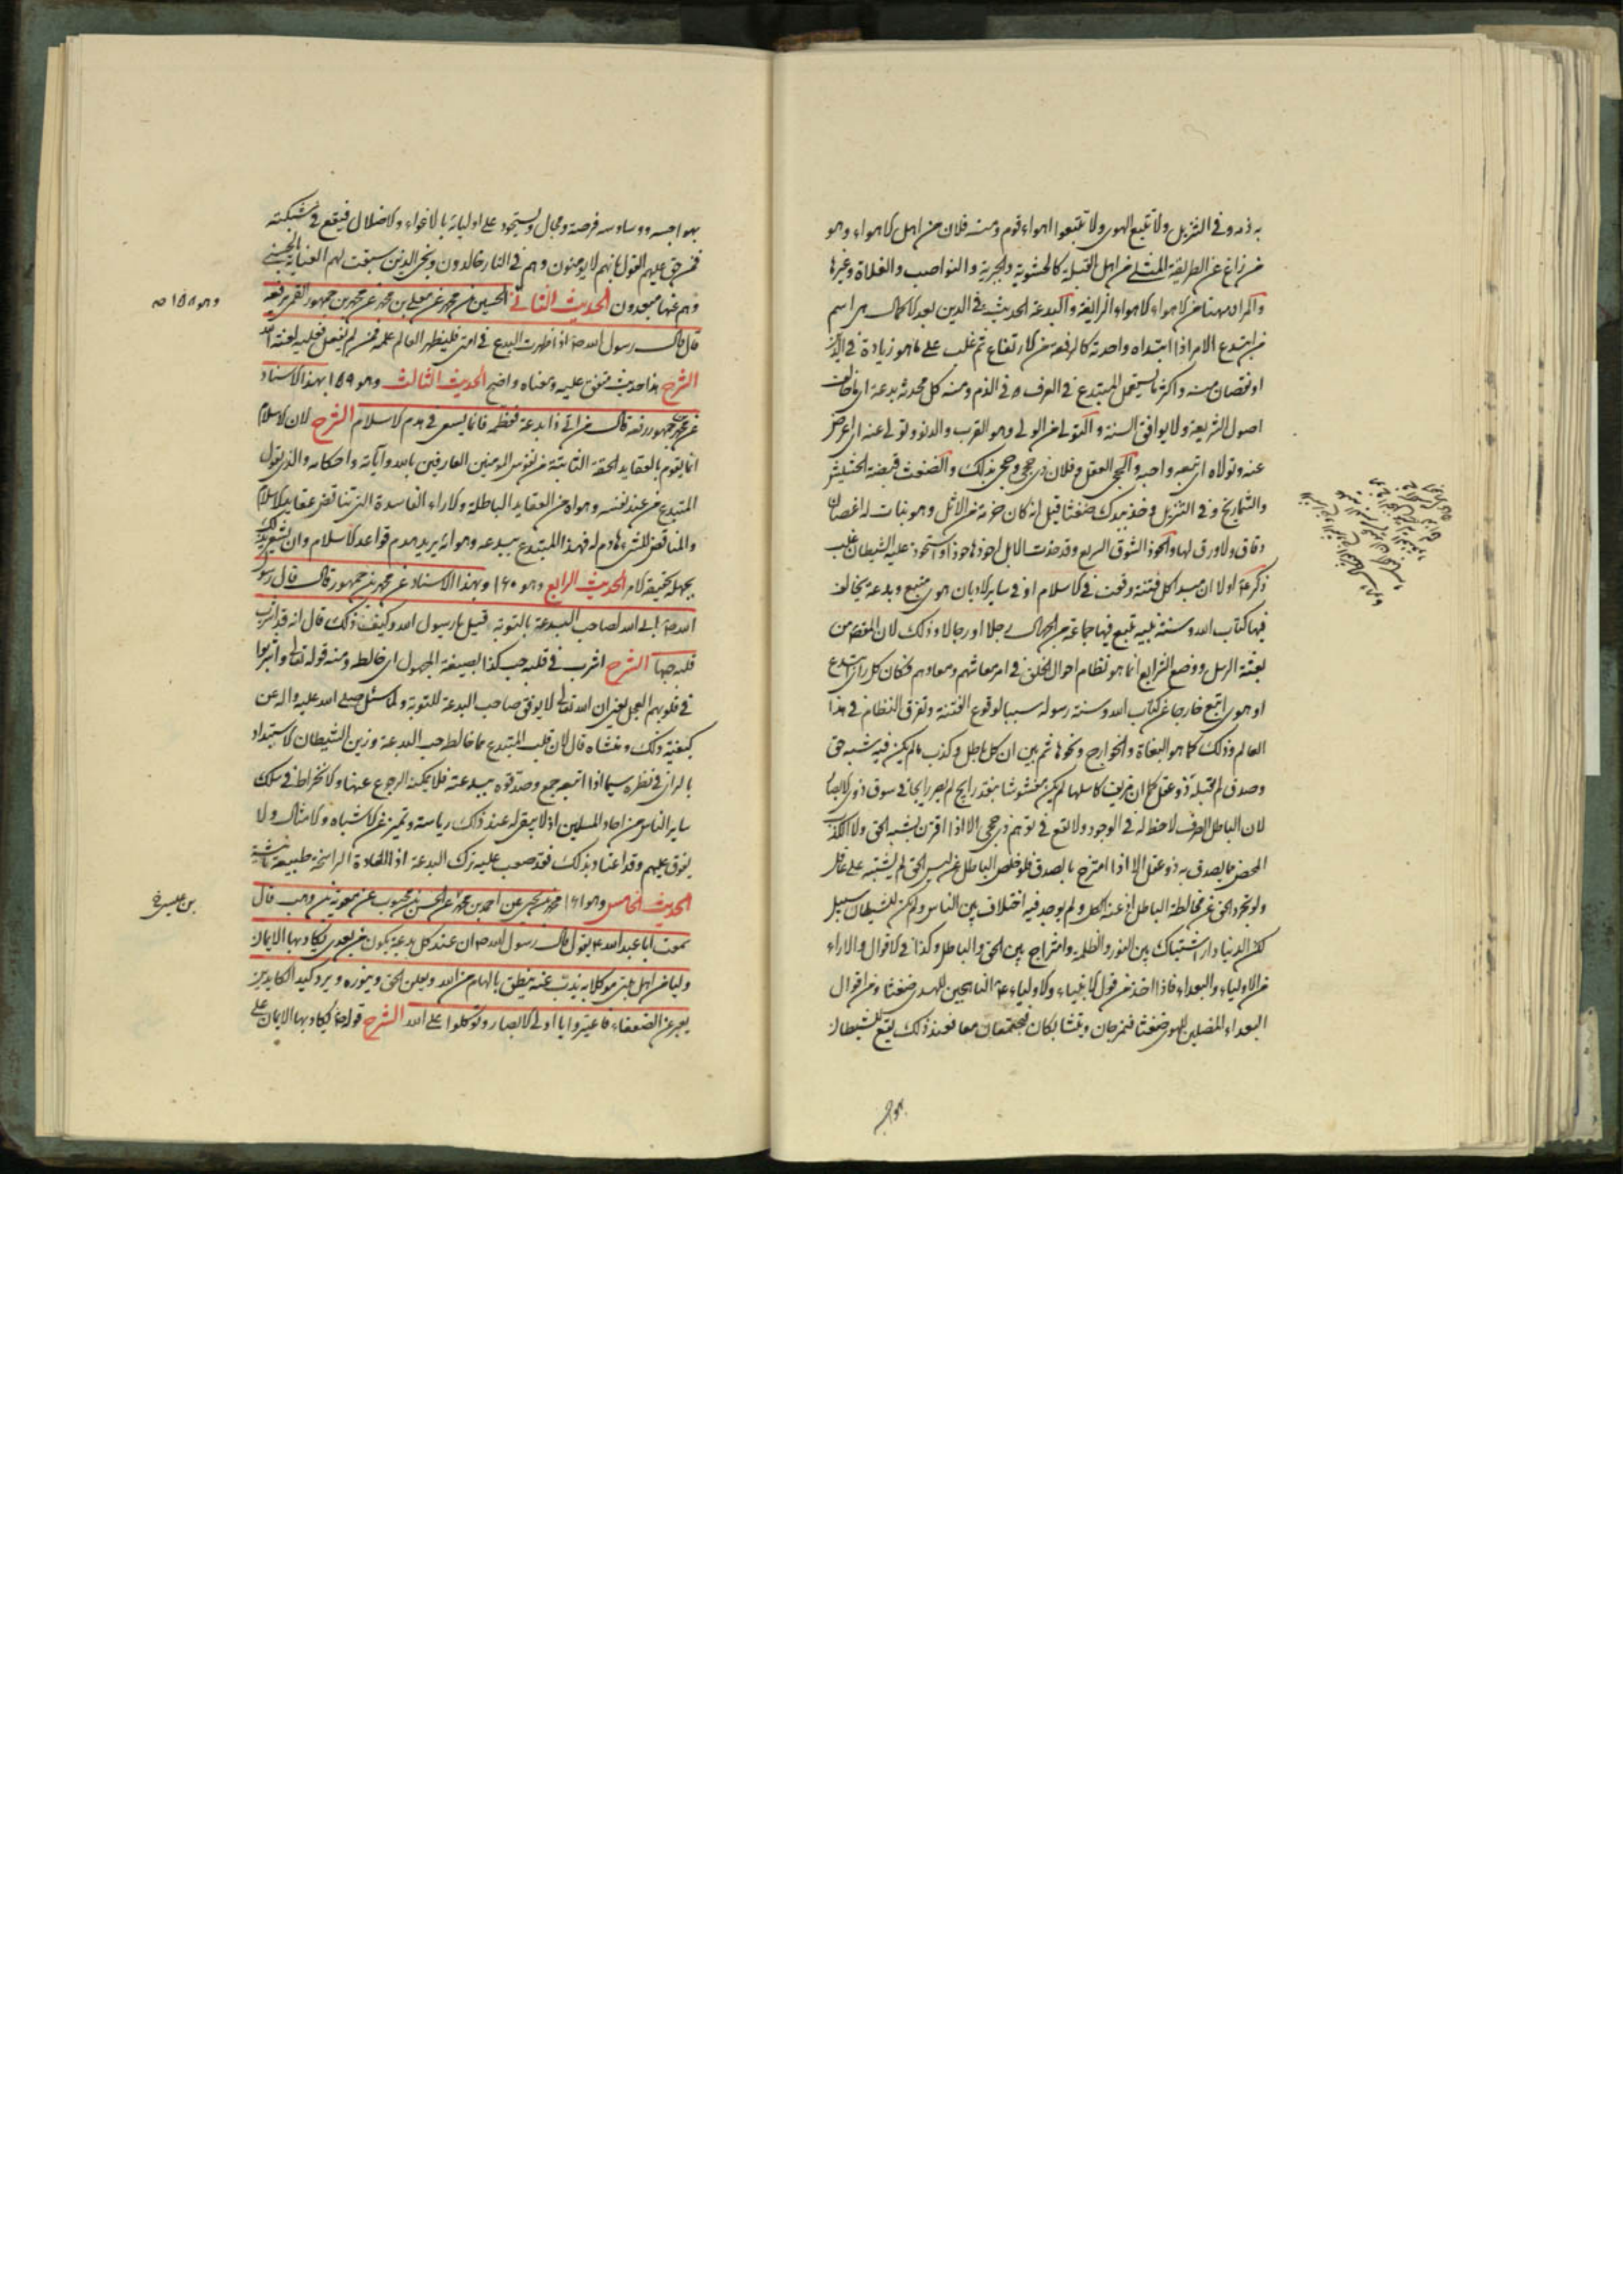 به ذمه وفى التنزيل ولا تتبع الهوى ولا تتبعوا اهواء قوم ومنه فلان من اهل الاهواء وهو
من زاغ عن الطريقة المثلى من اهل القبلة كالحشوية والجبرية والنواصب والغلاة وغيرها
والمراد ههنا من الاهواء الاهواء الزايغة والبدعة الحديث فى الدين بعد الاكمال هى اسم
من ابتدع الامر اذا ابتداه واحدثه كالرفعة من الارتفاع ثم غلب على ما هو زيادة فى الدين
او نقصان منه واكثر ما يستعمل المبتدع فى العرف فى الذم ومنه كل محدثة بدعة اى ما خالف
اصول الشريعة ولا يوافق السنة والتولى من الولى وهو القرب والدنو وتولى عنه اى اعرض
عنه وتولاه اى تبعه واحبه والحجى العقل وفلان ذى حجى وحجى بذلك والضغث قبضة الحشيش
والشماريخ وفى التنزيل وخذ بيدك ضغثا قيل انه كان حزمة من الاثل وهو نبات له اغصان
دقاق ولا ورق لها والحوذ السوق السريع وقد حذت الابل احوذها حوذا واستحوذ عليه الشيطان غلب
ذكر ع اولا ان مبدا كل فتنة وقعت فى الاسلام او فى ساير الاديان هوى متبع وبدعة يخالف
فيها كتاب الله وسنة نبيه تتبع فيها جماعة من الجهال رجلا او رجالا وذلك لان المقص من
بعثة الرسل ووضع الشرايع انما هو نظام احوال الخلق فى امر معاشهم ومعادهم فكان كل راى ابتدع
او هوى اتبع خارجا عن كتاب الله وسنة رسوله سببا لوقوع الفتنة وتفرق النظام فى هذا
العالم وذلك كاهواء البغاة والخوارج ونحوها ثم بين ان كل باطل وكذب ما لم يكن فيه شبه حق
وصدق لم يقبله ذو عقل كما ان مزيف كاسلها لم يكن مغشوشا بنقد رايج لم يصر رايجا فى سوق ذوى الابصار
لان الباطل الصرف لا حظ له فى الوجود ولا يقع فى توهم ذى حجى الا اذا اقترن بشبه الحق ولا الكذب
المحض مما يصدق به ذو عقل الا اذا امتزج بالصدق فلو خلص الباطل عن لبس الحق لم يشتبه على عاقل
ولو تجرد الحق عن مخالطة الباطل اذعنه الكل ولم يوجد فيه اختلاف بين الناس ولم يكن للشيطان سبيل
لكن الدنيا دار اشتباك بين النور والظلمة وامتزاج بين الحق والباطل وكذا فى الاقوال والاراء
من الاولياء والبعداء فاذا اخذ من قول الانبياء والاولياء ع الناهجين للهدى ضغثا ومن اقوال
البعداء المضلين للهوى ضغثا فيمزجان ويتشابكان فيجتمعان معا فعند ذلك يقع للشيطان
بهوا
بهواجسه ووساوسه فرصة ومجال ويستحوذ على اوليائه بالاغواء والاضلال فيقع فى شبكته
فمن حق عليهم القول بانهم لا يومنون وهم فى النار خالدون ونجى الذين سبقت لهم العناية بالحسنى
وهم عنها مبعدون الحديث الثانى الحسين بن محمد عن معلى بن محمد عن محمد بن جمهور القمى يرفعه
وهو ١٥٨
قال قال رسول الله ص اذا ظهرت البدع فى امتى فليظهر العالم علمه فمن لم يفعل فعليه لعنة الله
الشرح هذا حديث متفق عليه ومعناه واضح الحديث الثالث وهو ١٥٩ بهذا الاسناد
عن محمد بن جمهور رفعه قال من اتى ذا بدعة فعظمه فانما يسعى فى هدم الاسلام الشرح لان الاسلام
انما يقوم بالعقايد الحقة الثابتة من نفوس المومنين العارفين بالله وآياته واحكامه والذى يقول
المبتدع من عند نفسه وهواه من العقايد الباطلة والاراء الفاسدة التى تناقض عقايد الاسلام
والمناقض للشىء هادم له فهذا المبتدع ببدعه وهوائه يريد هدم قواعد الاسلام وان لم يشعر بذلك
بجهله بحقيقة الامر الحديث الرابع وهو ١٦٠ وبهذا الاسناد عن محمد بن جمهور قال قال رسول
الله ص ابى الله لصاحب البدعة بالتوبة قيل يا رسول الله وكيف ذلك قال انه قد اشرب
قلبه حبها الشرح اشرب فى قلبه حب كذا بصيغة المجهول اى خالطه ومنه قوله تعالى واشربوا
فى قلوبهم العجل يعنى ان الله تعالى لا يوفق صاحب البدعة للتوبة ولما سئل صلى الله عليه واله عن
كيفية ذلك ومنشاه قال لان قلب المبتدع مما خالطه حب البدعة وزين الشيطان الاستبداد
بالراى فى نظره سيما اذا اتبعه جمع وصدقوه ببدعته فلا يمكنه الرجوع عنها والانخراط فى سلك
ساير الناس من احاد المسلمين اذ لا يبقى له عند ذلك رياسة وتميز عن الاشباه والامثال ولا
يفوق عليهم وقد اعتاد بذلك فقد صعب عليه ترك البدعة اذ العادة الراسخة طبيعة ثانية
الحديث الخامس وهو ١٦١ محمد بن يحيى عن احمد بن محمد عن الحسن بن محبوب عن معوية بن وهب قال
بن عيسى خ
سمعت ابا عبد الله ع يقول قال رسول الله ص ان عند كل بدعة يكون من بعدى يكاد بها الايمان
وليا من اهل بيتى موكلا به يذب عنه ينطق بالهام من الله ويعلن الحق وينوره ويرد كيد الكايدين
يعبر عن الضعفاء فاعتبروا يا اولى الابصار وتوكلوا على الله الشرح قوله ع يكاد بها الايمان على